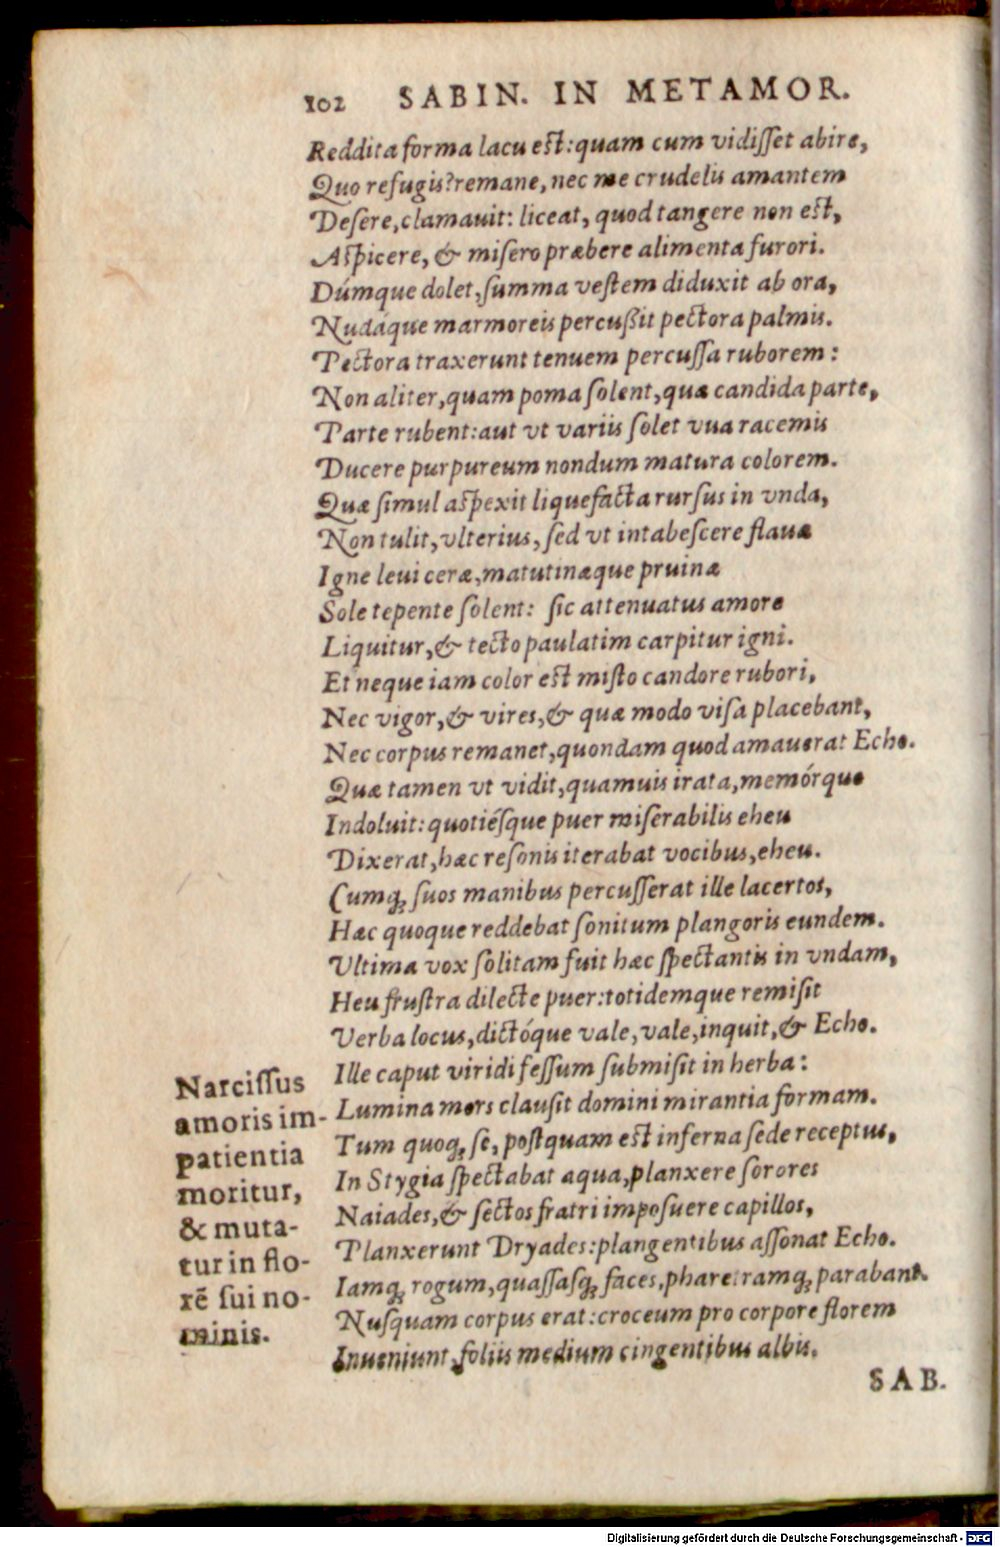 102 SABIN. IN METAMOR.
Reddita forma lacu est: quam cum vidisset abire,
Quo refugis? remane, nec me crudelis amantem
Desere, clamauit: liceat, quod tangere non est,
Aspicere, & misero præbere alimenta furori.
Dúmque dolet, summa vestem diduxit ab ora,
Nudáque marmoreis percußit pectora palmis.
Pectora traxerunt tenuem percussa ruborem:
Non aliter, quam poma solent, quæ candida parte,
Parte rubent: aut vt variis solet vua racemis
Ducere purpureum nondum matura colorem.
Quæ simul aspexit liquefacta rursus in vnda,
Non tulit, vlterius, sed vt intabescere flauæ
Igne leui ceræ, matutinæque pruinæ
Sole tepente solent: sic attenuatus amore
Liquitur, & tecto paulatim carpitur igni.
Et neque iam color est misto candore rubori,
Nec vigor, & vires, & quæ modo visa placebant,
Nec corpus remanet, quondam quod amauerat Echo.
Quæ tamen vt vidit, quamuis irata, memórque
Indoluit: quotiésque puer miserabilis eheu
Dixerat, hæc resonis iterabat vocibus, eheu.
Cumq; suos manibus percusserat ille lacertos,
Hæc quoque reddebat sonitum plangoris eundem.
Vltima vox solitam fuit hæc spectantis in vndam,
Heu frustra dilecte puer: totidemque remisit
Verba locus, dictóque vale, vale, inquit, & Echo.
Ille caput viridi fessum submisit in herba:
Lumina mors clausit domini mirantia formam.
Tum quoq; se, postquam est inferna sede receptus,
In Stygia spectabat aqua, planxere sorores
Naiades, & sectos fratri imposuere capillos,
Planxerunt Dryades: plangentibus assonat Echo.
Iamq; rogum, quassasq; faces, pharetramq; parabant.
Nusquam corpus erat: croceum pro corpore florem
Inueniunt, foliis medium cingentibus albis.
Narcissus
amoris im-
patientia
moritur,
& muta-
tur in flo-
rẽ sui no-
minis.
SAB.
Digitalisierung gefördert durch die Deutsche Forschungsgemeinschaft - DFG